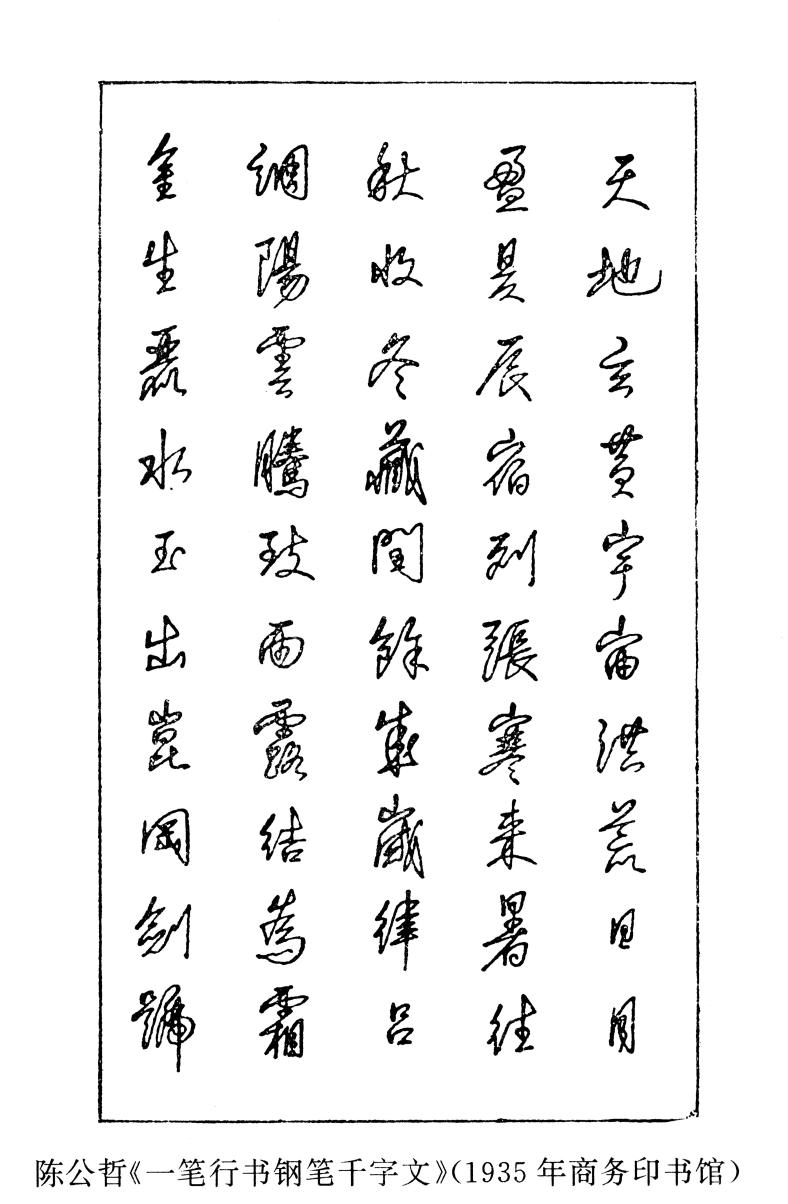 天地玄黄宇宙洪荒日月
盈昃辰宿列張寒来暑往
秋收冬藏閏餘成歲律吕
調陽雲騰致雨露結為霜
金生麗水玉出崑岡劍號
陈公哲《一笔行书钢笔千字文》(1935 年商务印书馆)